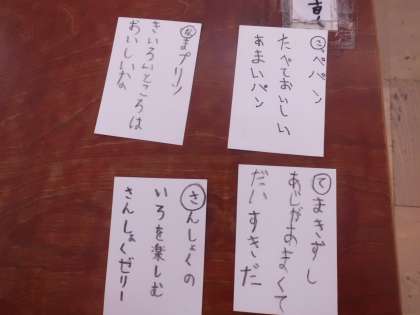 こっぺパン
たべておいしい
あまいパン
なまプリン
きいろいところは
おいしいな
てまきずし
あじがあまくて
だいすきだ
さんしょくの
いろを楽しむ
さんしょくゼリー